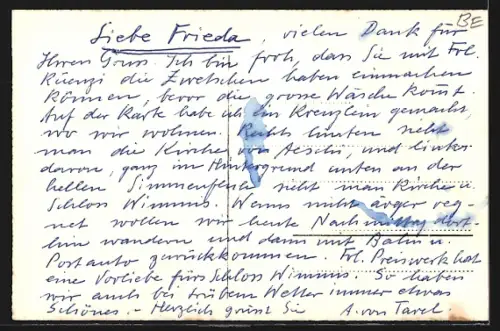 BE
Liebe Frieda, vielen Dank für
Ihren Gruss. Ich bin froh, dass Sie mit Frl.
Küenzi die Zwetschen haben einmachen
können, bevor die grosse Wäsche kommt.
Auf der Karte habe ich ein Kreuzlein gemacht,
wo wir wohnen. Rechts hinten sieht
man die Kirche von Aeschi, und links
davon, ganz im Hintergrund unten an der
hellen Simmenfluh sieht man Kirche u.
Schloss Wimmis. Wenns nicht ärger reg-
net wollen wir heute Nachmittag dort
hin wandern und dann mit Bahn u.
Postauto zurückkommen. Frl. Preiswerk hat
eine Vorliebe fürs Schloss Wimmis. So haben
wir auch bei trübem Wetter immer etwas
Schönes. - Herzlich grüsst Sie A. von Tavel.